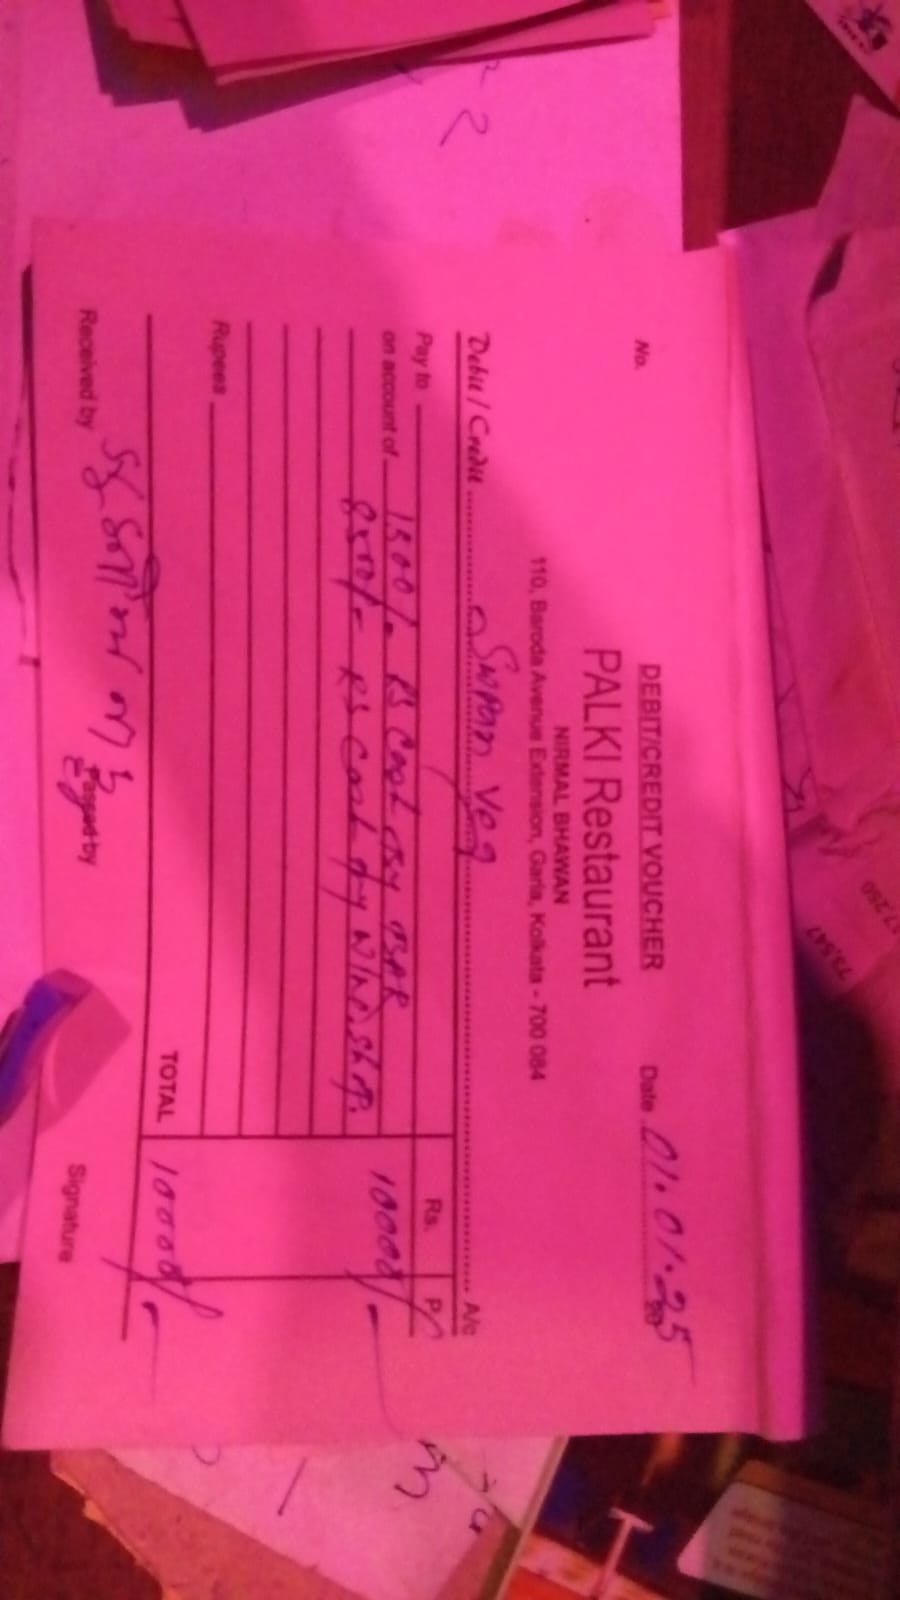 DEBIT/CREDIT VOUCHER
No.
Date 01.01.25
PALKI Restaurant
NIRMAL BHAWAN
110, Baroda Avenue Extension, Garia, Kolkata - 700 084
Debit / Credit Swapan Veg A/c
Rs. P.
Pay to
on account of 1500/- RS Cash By BAR 10000/-
8500/- RS Cash By Wine Shop.
Rupees
TOTAL 10000/-
Received by
Passed by
Signature
73,547